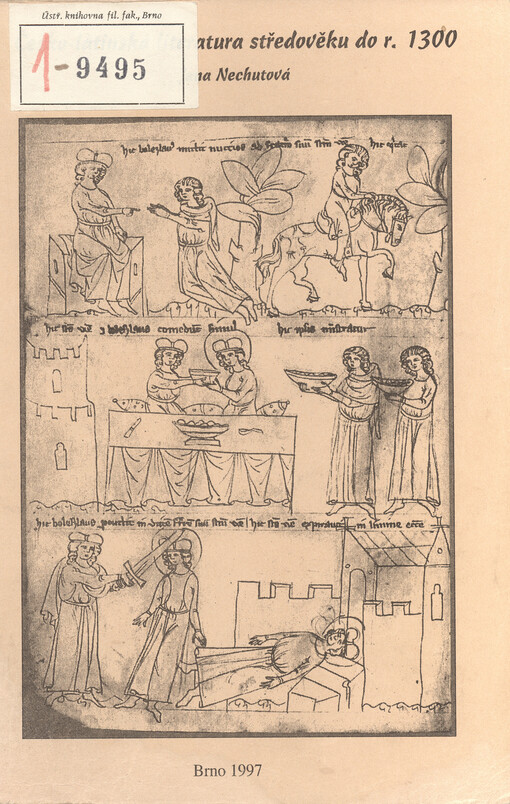 Ústř. knihovna fil. fak., Brno
1-9495
atura středověku do r. 1300
na Nechutová
hic boleslaus mittit nuncios ad fratrem suum
hic
hic
boleslaus comedunt simul
hic ipsis ministratur
hic boleslaus percutit
hic
expiravit in limine ecce
Brno 1997